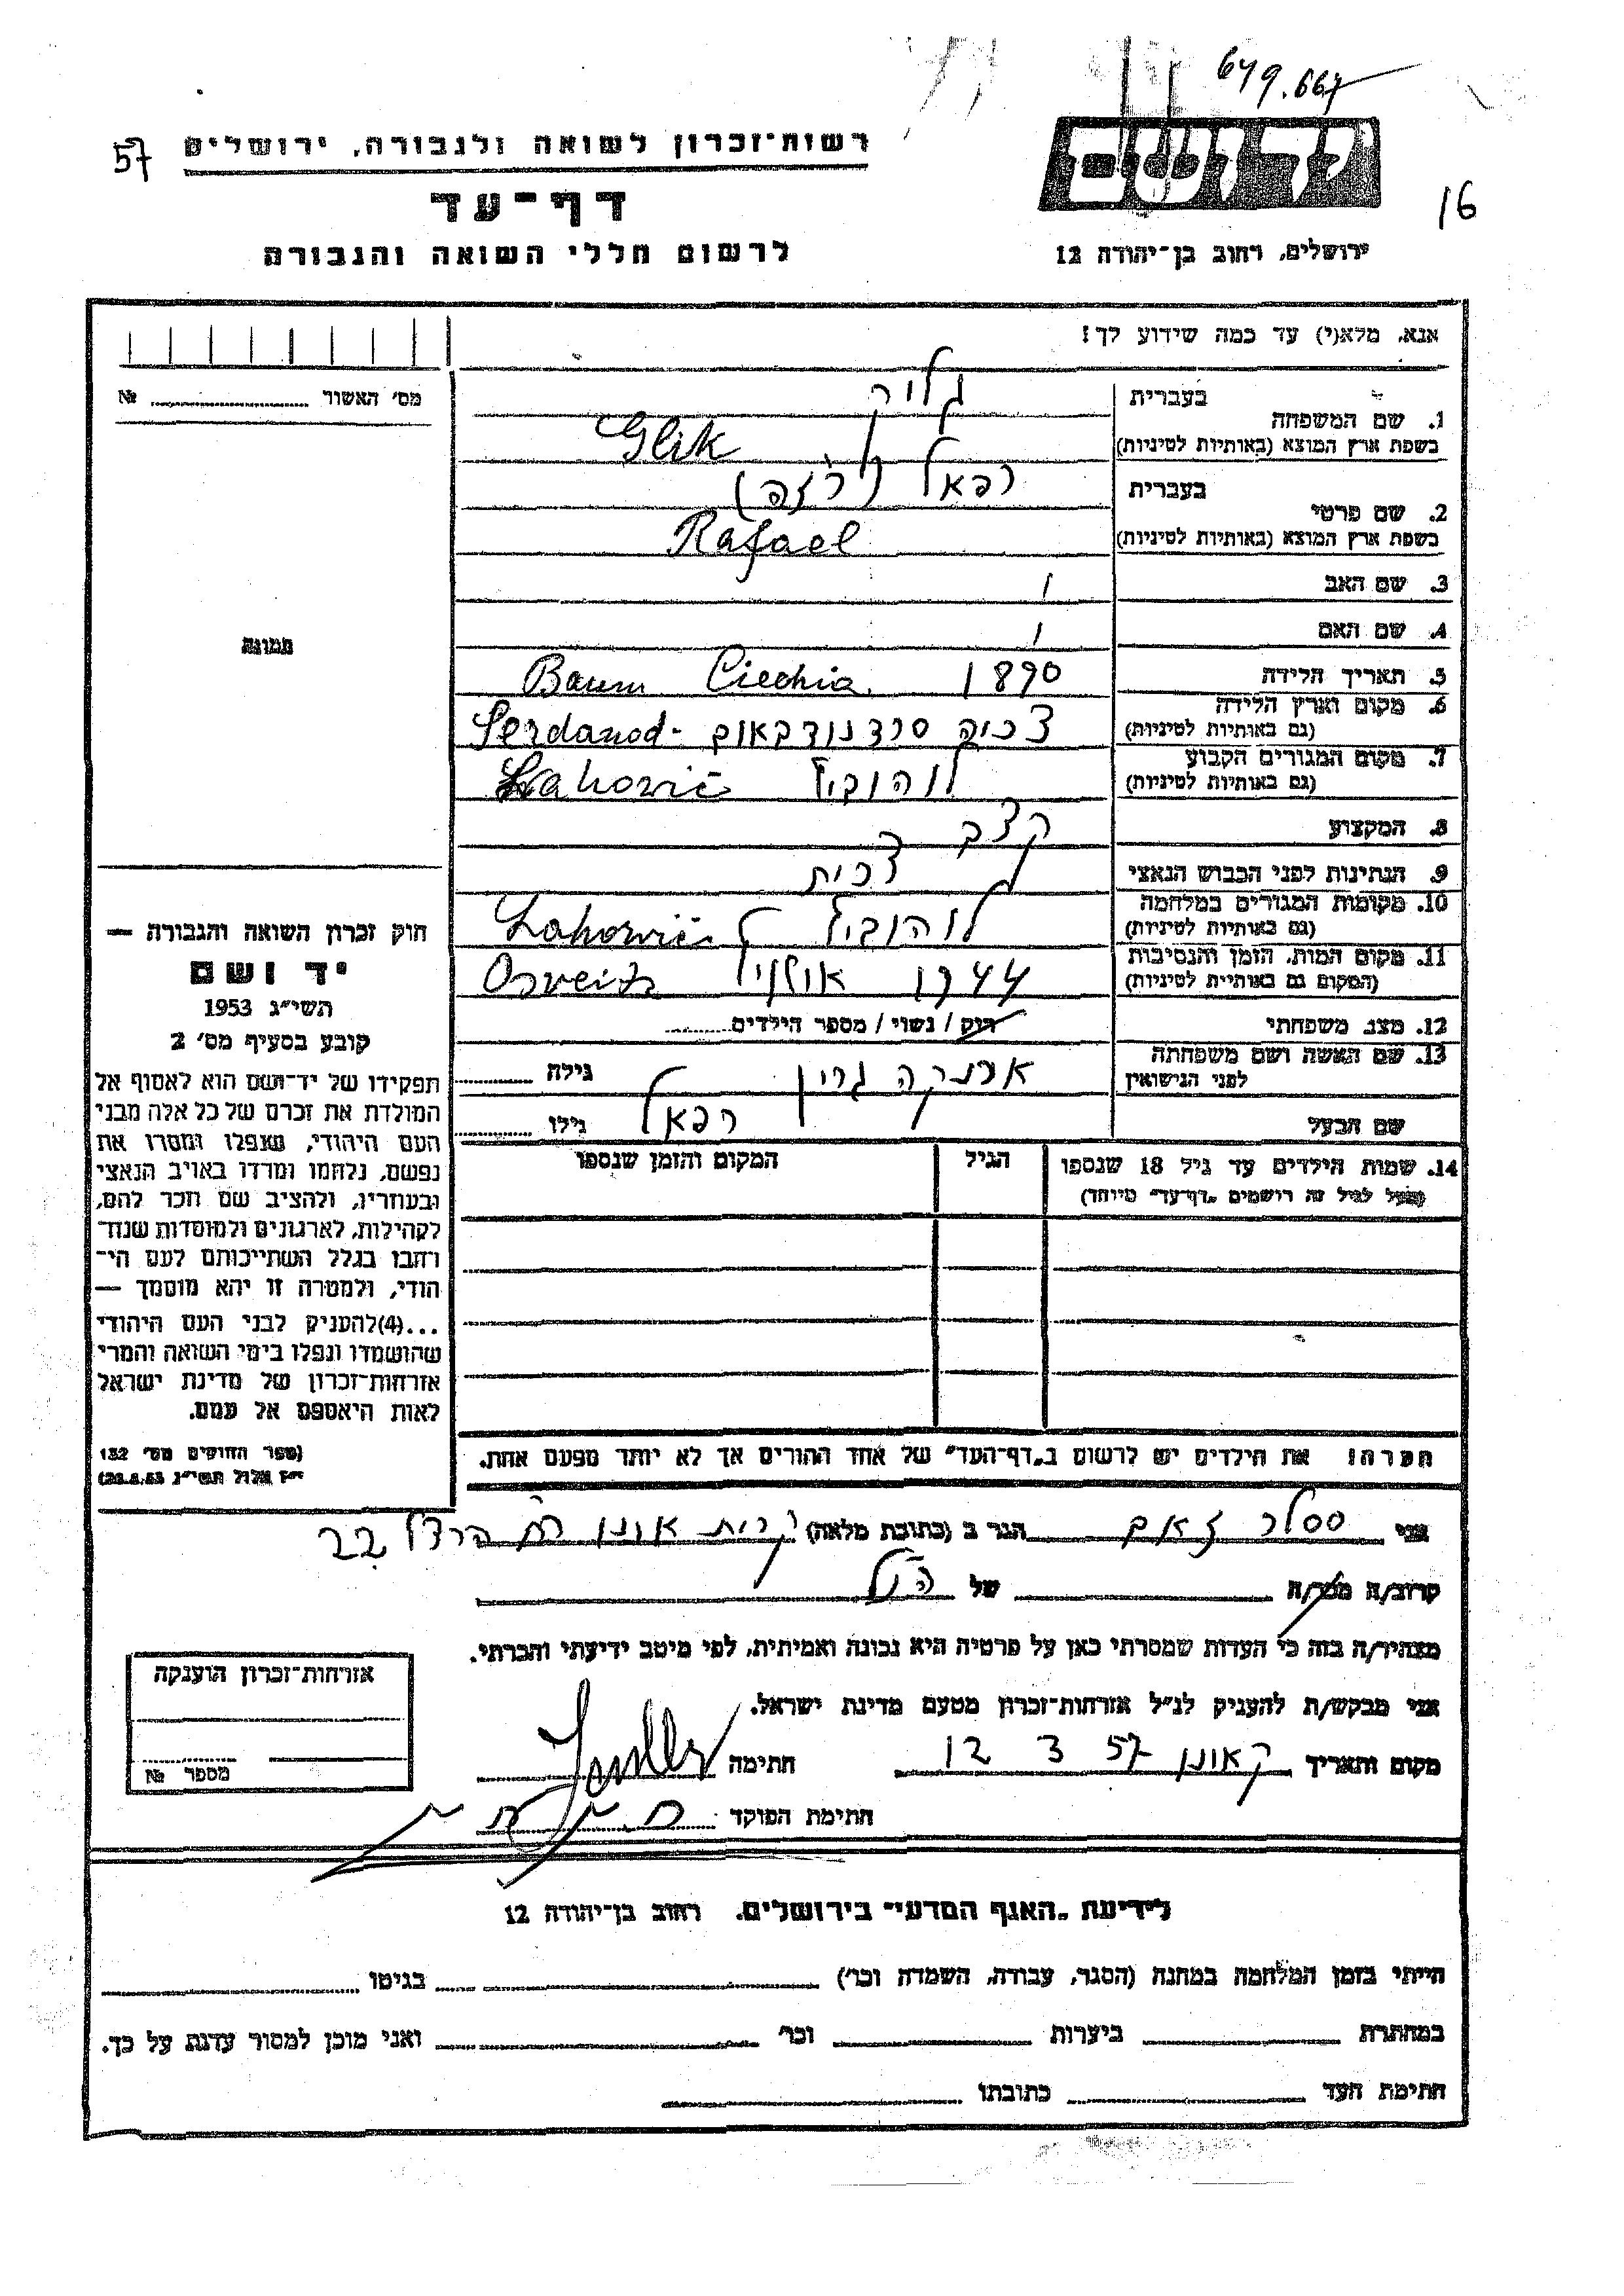 649.667
רשות־זכרון לשואה ולגבורה, ירושלים
57
דף־עד
לרשום חללי השואה והגבורה
יד ושם
16
ירושלים, רחוב בן־יהודה 12
אנא, מלא(י) עד כמה שידוע לך!
מס׳ האשור № 
1. שם המשפחה
בעברית גליק
בשפת ארץ המוצא (באותיות לטיניות) Glik
2. שם פרטי
בעברית רפאל
בשפת ארץ המוצא (באותיות לטיניות) Rafael
3. שם האב /
4. שם האם /
תמונה
5. תאריך הלידה 1890 Ciechia Baum
6. מקום וארץ הלידה
(גם באותיות לטיניות) צכיה סרדנודבאום Serdanod-
7. מקום המגורים הקבוע
(גם באותיות לטיניות) לוהוביץ Lahovič
8. המקצוע קצב
9. הנתינות לפני הכבוש הנאצי צכית
10. מקומות המגורים במלחמה
(גם באותיות לטיניות) לוהוביץ Lahovič
11. מקום המות, הזמן והנסיבות
(המקום גם באותיות לטיניות) 1944 Osveitz
12. מצב משפחתי רווק / נשוי / מספר הילדים
13. שם האשה ושם משפחתה
לפני הנישואין גרין גילה
שם הבעל רפאל גילו
14. שמות הילדים עד גיל 18 שנספו
(מעל לגיל זה רושמים „דף־עד״ מיוחד)
הגיל
המקום והזמן שנספו
הערה: את הילדים יש לרשום ב„דף־העד״ של אחד ההורים אך לא יותר מפעם אחת.
חוק זכרון השואה והגבורה —
יד ושם
תשי״ג 1953
קובע בסעיף מס׳ 2
תפקידו של יד־ושם הוא לאסוף אל
המולדת את זכרם של כל אלה מבני
העם היהודי, שנפלו ומסרו את
נפשם, נלחמו ומרדו באויב הנאצי
ובעוזריו, ולהציב שם וזכר להם,
לקהילות, לארגונים ולמוסדות שנח־
רבו בגלל השתייכותם לעם הי־
הודי, ולמטרה זו יהא מוסמך —
...(4)להעניק לבני העם היהודי
שהושמדו ונפלו בימי השואה והמרי
אזרחות־זכרון של מדינת ישראל
לאות היאספם אל עמם.
(ספר החוקים מס׳ 132
י״ז אלול תשי״ג 28.8.53)
אני הגר ב (כתובת מלאה) קרית אונו 22
קרוב/ה מכר/ה של הנ״ל
מצהיר/ה בזה כי העדות שמסרתי כאן על פרטיה היא נכונה ואמיתית, לפי מיטב ידיעתי והכרתי.
אני מבקש/ת להעניק לנ״ל אזרחות־זכרון מטעם מדינת ישראל.
מקום ותאריך ק אונו 57 3 12 חתימה
חתימת הפוקד
אזרחות־זכרון הוענקה
מספר №
לידיעת „האגף המדעי״ בירושלים. רחוב בן־יהודה 12
הייתי בזמן המלחמה במחנה (הסגר, עבודה, השמדה וכו׳) בגיטו
במחתרת ביערות וכו׳ ואני מוכן למסור עדות על כך.
חתימת העד כתובתו